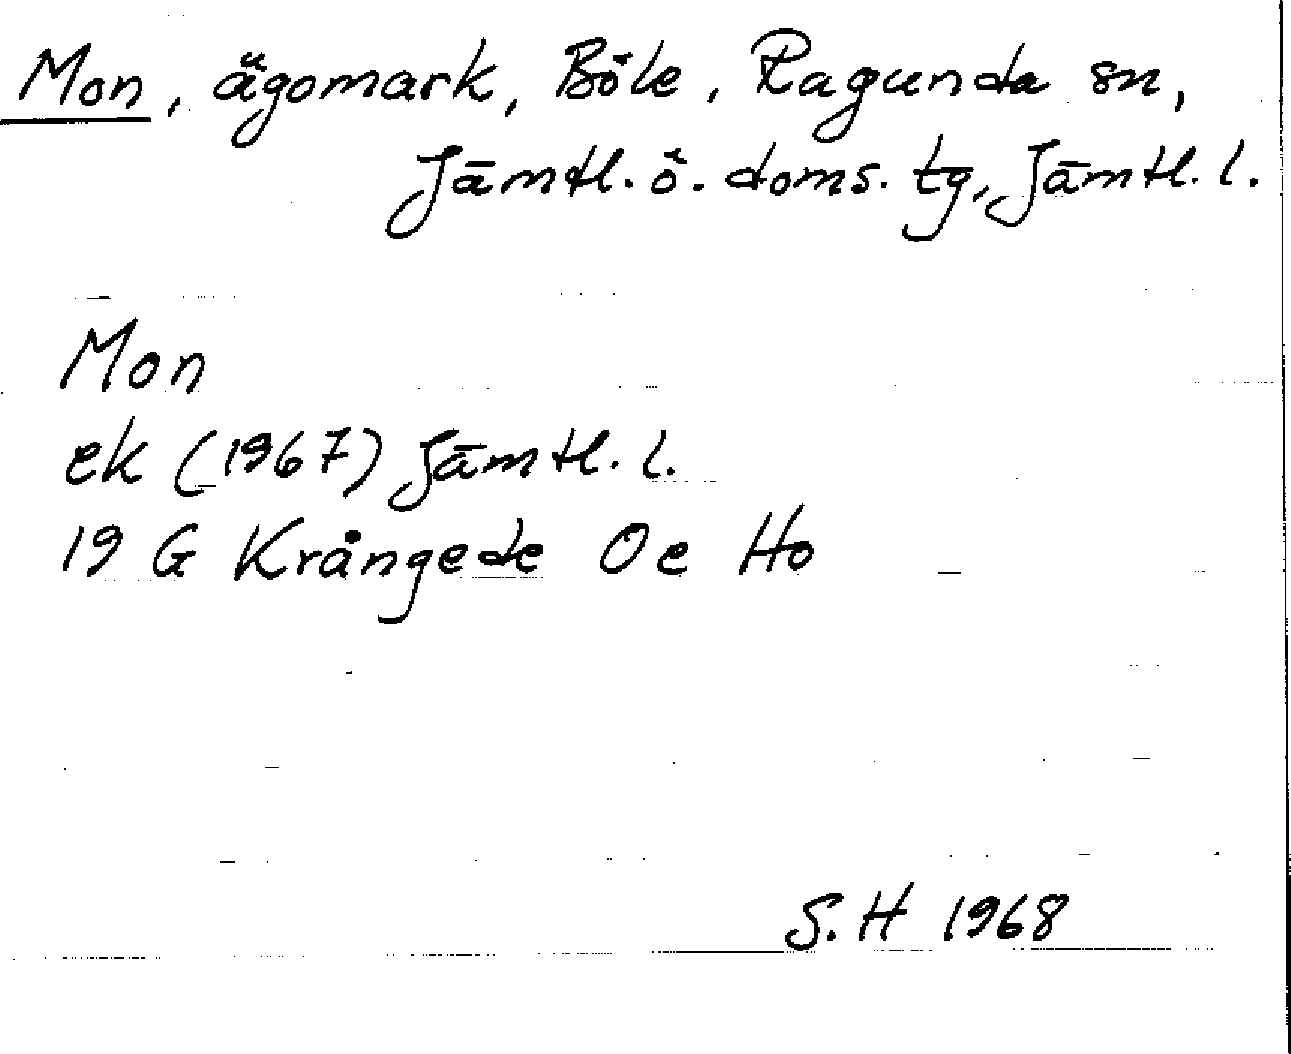 Mon, ägomark, Böle, Ragunda sn,
Jämtl. ö. doms. tg, Jämtl. l.
Mon
ek (1967) Jämtl. l.
19 G Krångede Oe Ho
S. H 1968